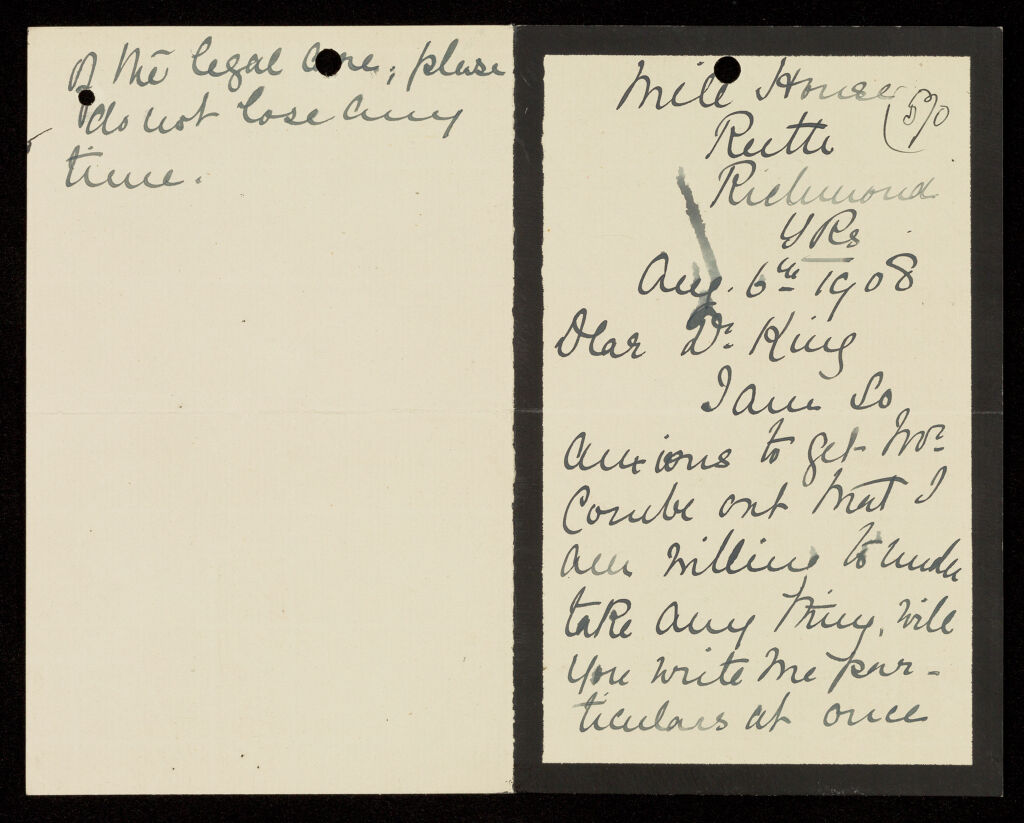 Mill House
Reeth
Richmond
YKs
Aug. 6th 1908
Dear Dr. King
I am so
anxious to get Mr.
Combe out that I
am willing to under
take any thing, will
you write me par-
ticulars at once
of the legal care; please
do not lose any
time.